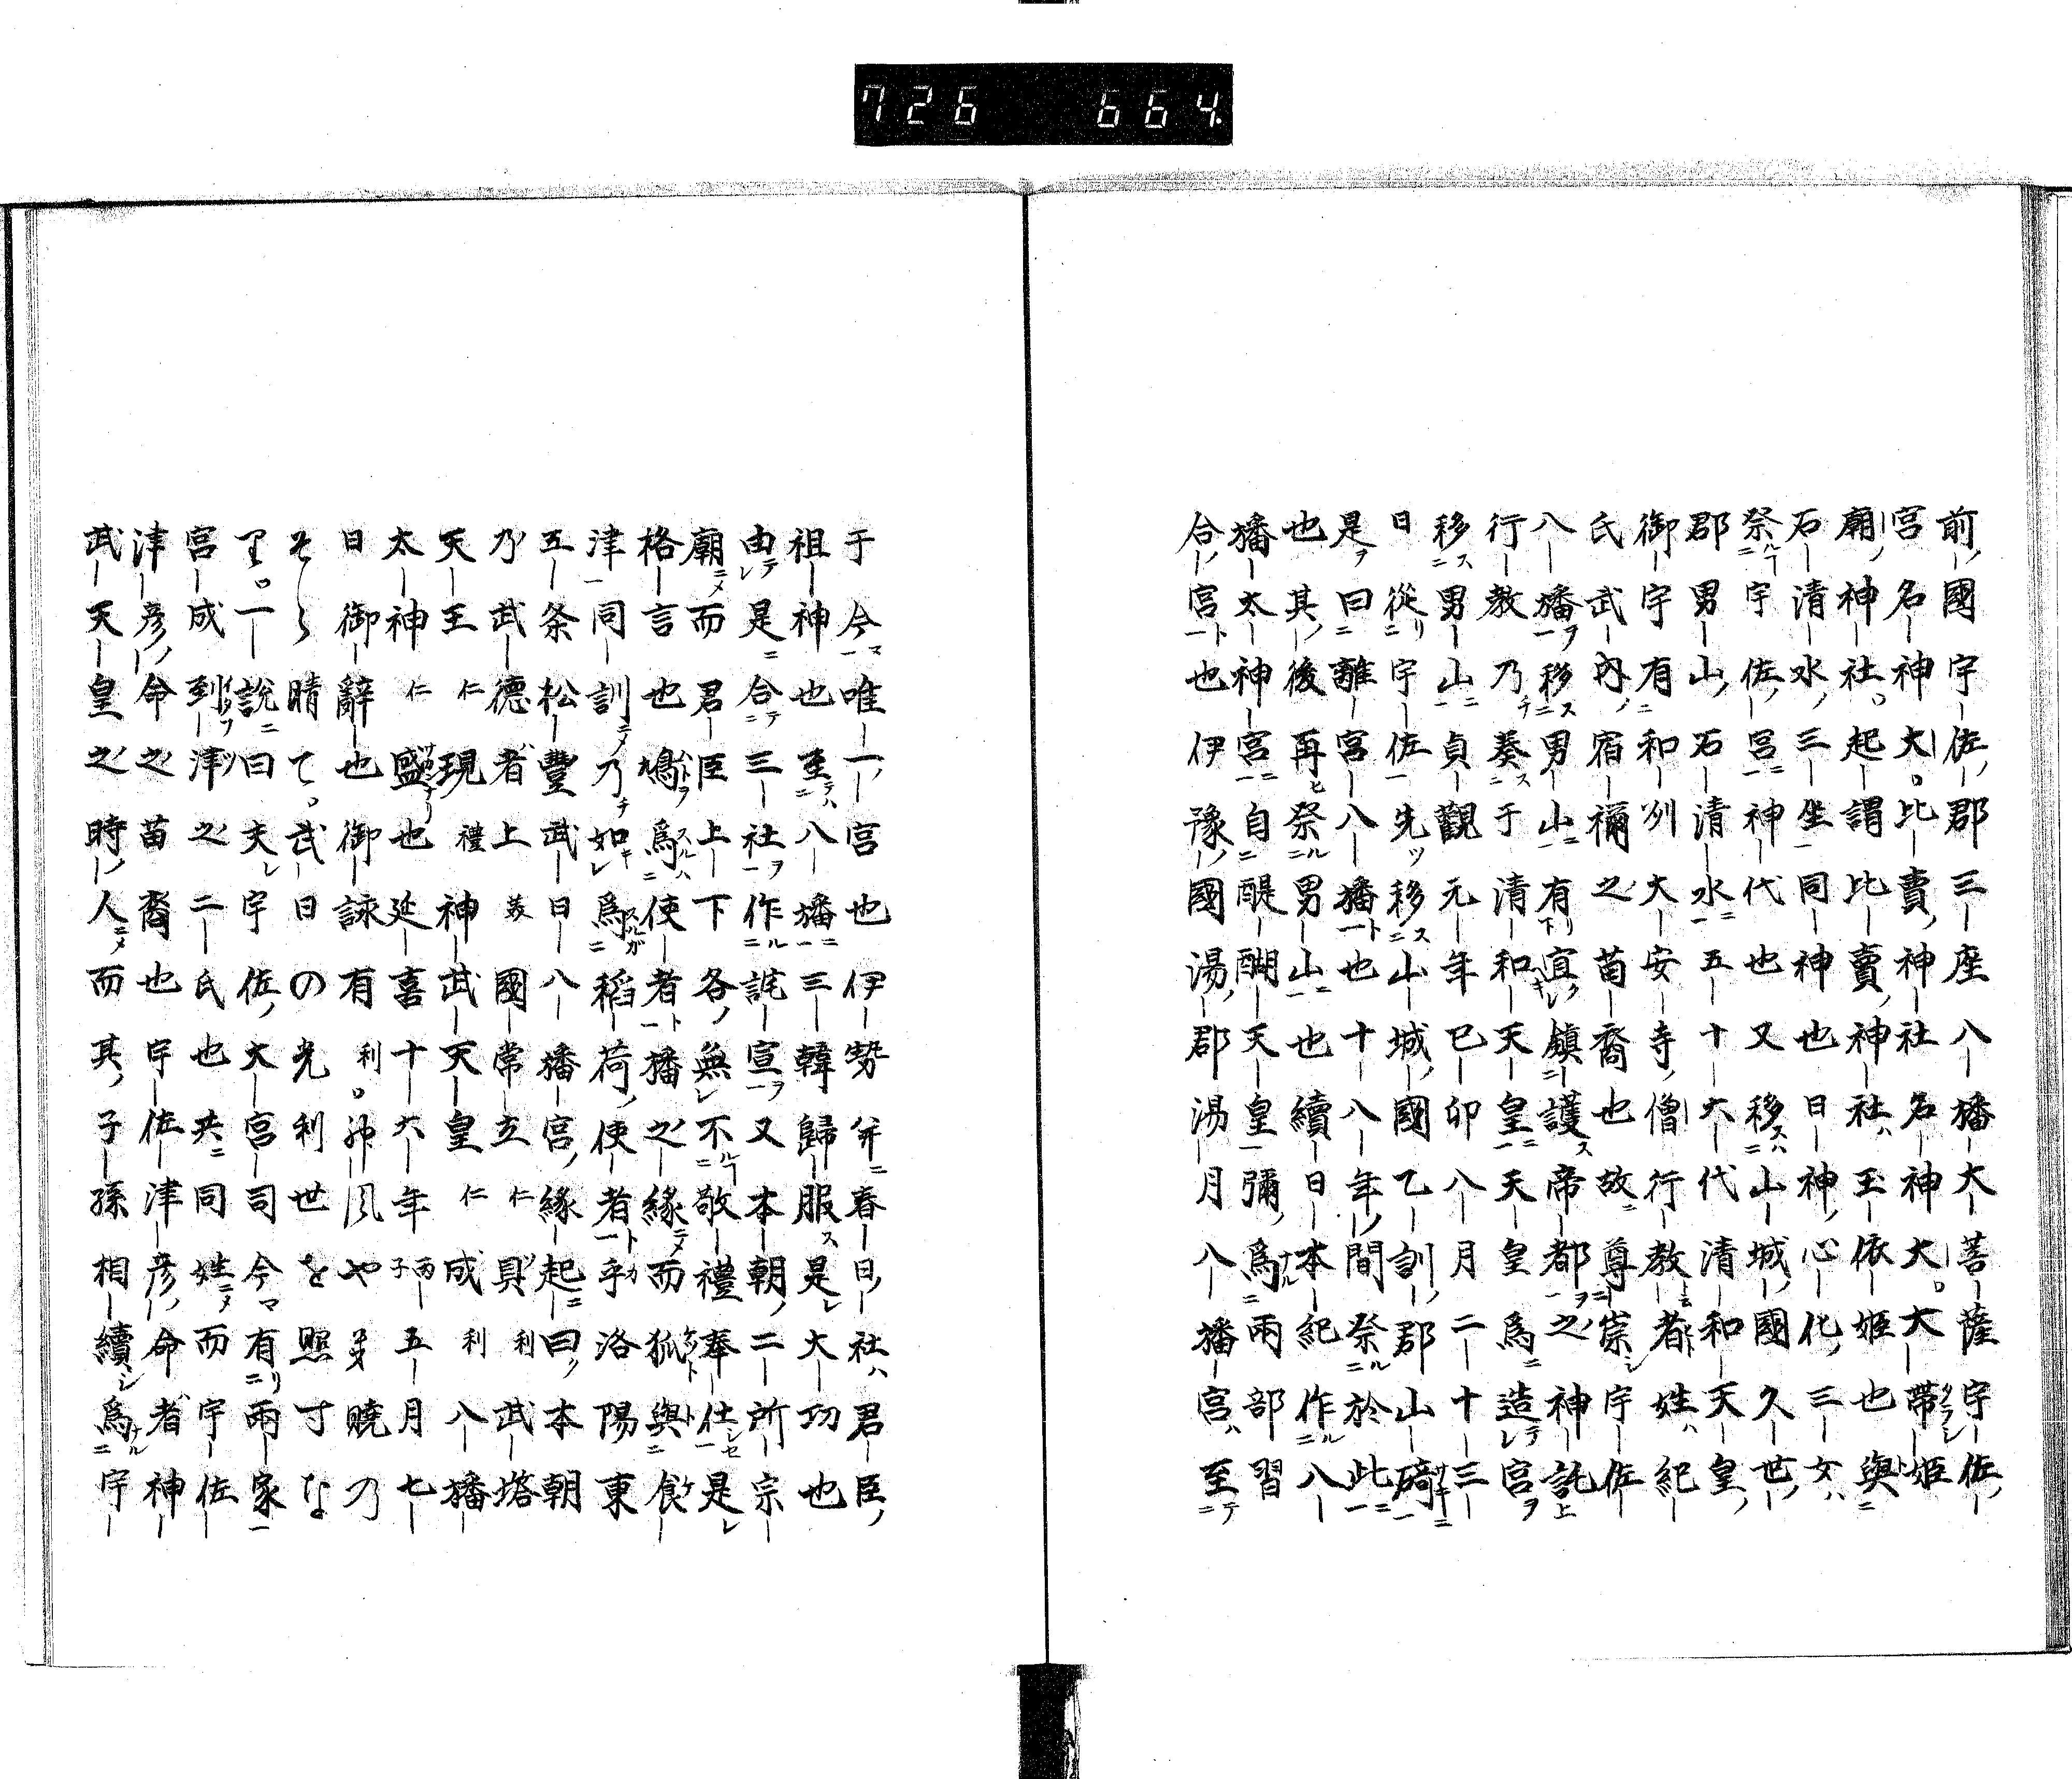 726 664
前國宇佐郡三座八播大菩薩宇佐
宮名神大比賣神社名神大大帶姫
廟神社起謂比賣神社玉依姫也與
石清水三坐同神也日神心化三女
祭宇佐宮神代也又移山城國久世
郡男山石清水五十六代清和天皇
御宇有和州大安寺僧行教者姓紀
氏武内宿禰之苗裔也故尊崇宇佐
八播移男山有宜鎮護帝都之神託
行教乃奏于清和天皇天皇爲造宮
移男山貞觀元年己卯八月二十三
日從宇佐先移山城國乙訓郡山碕
是曰離宮八播也十八年間祭於此
也其後再祭男山也續日本紀作八
播太神宮自醍醐天皇彌爲兩部習
合宮也伊豫國湯郡湯月八播宮至
于今唯一宮也伊勢并春日社君臣
祖神也至八播三韓歸服是大功也
由是合三社作詫宣又本朝二所宗
廟而君臣上下各無不敬禮奉仕是
格言也鳩爲使者播之緣而狐與食
津同訓乃如爲稲荷使者乎洛陽東
五条松豐武曰八播宮緣起曰本朝
乃武德者上義國常立仁具利武塔
天王仁現禮神武天皇仁成利八播
太神仁盛也延喜十六年丙子五月七
日御辭也御詠有利神風や曉乃
そら晴て武日の光利世を照寸な
里一說曰夫宇佐大宮司今有兩家
宮成到津之二氏也共同姓而宇佐
津彦命之苗裔也宇佐津彦命者神
武天皇之時人而其子孫相續爲宇